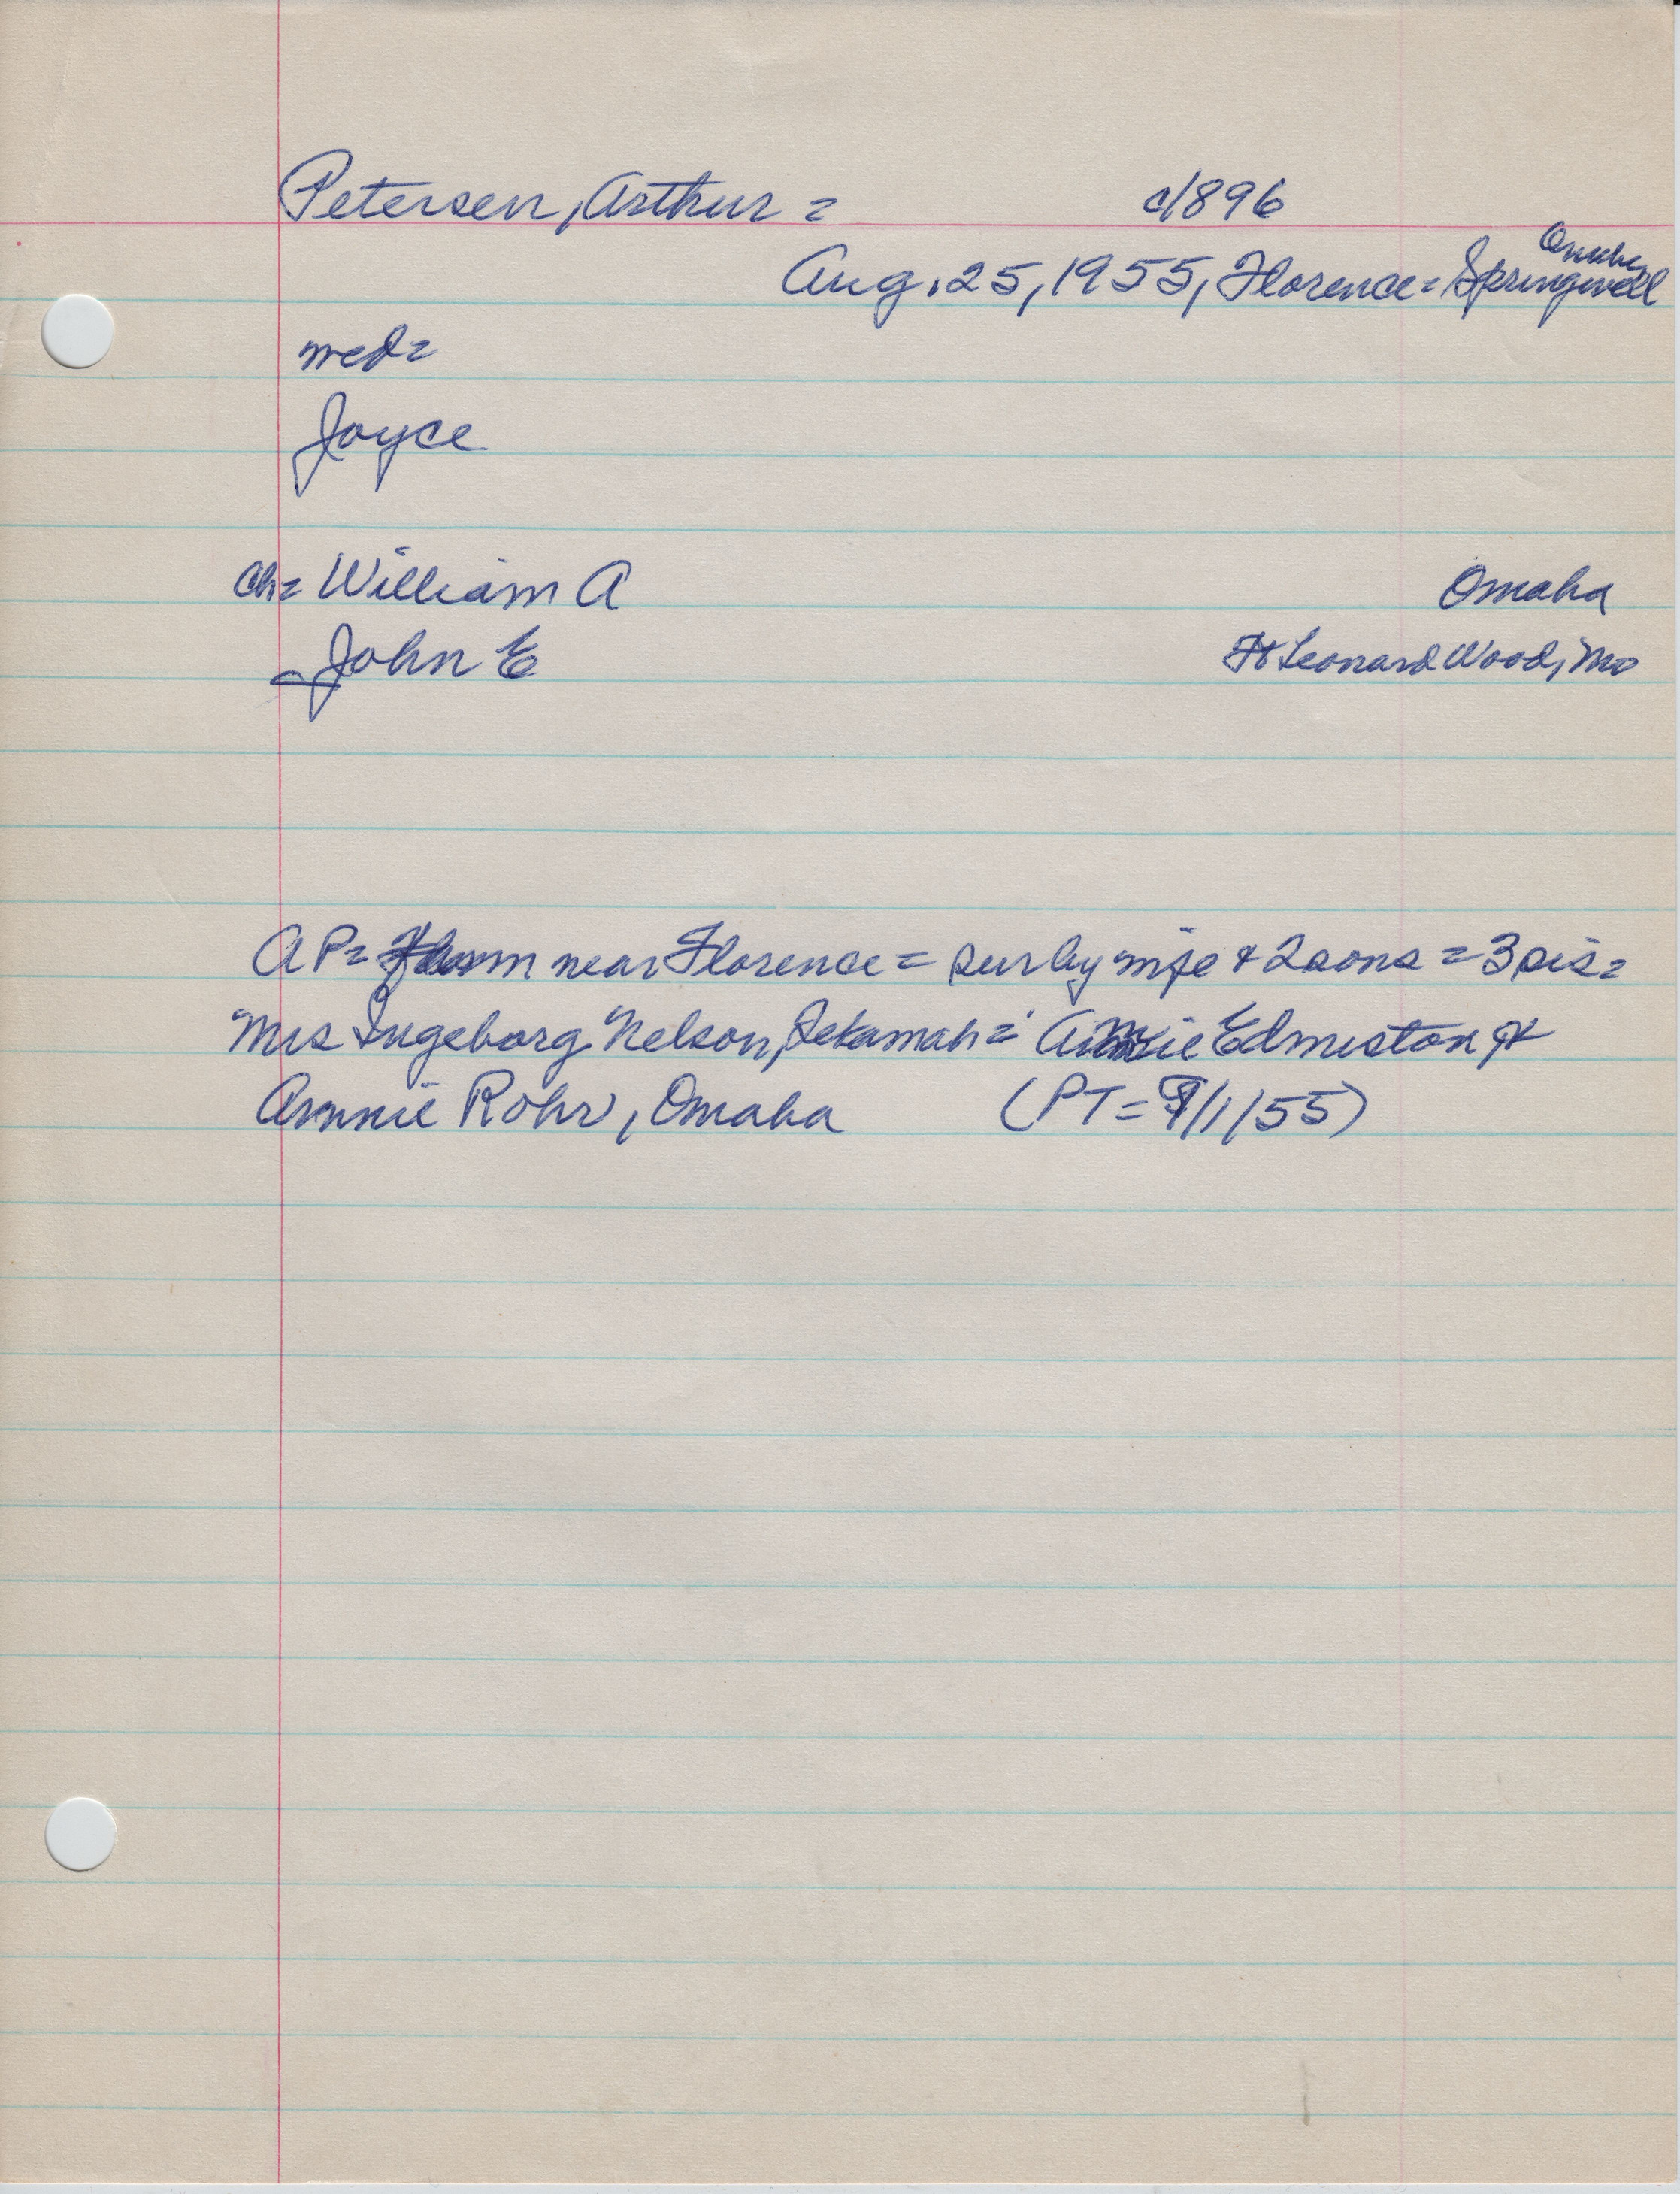 Petersen, Arthur = c1896
Aug. 25, 1955, Florence = Springwell Omaha
wed=
Joyce
Ch= William A Omaha
John E Ft Leonard Wood, Mo
AP= near Florence = sur by wife & 2 sons = 3 sis=
Mrs Ingeborg Nelson, Tekamah = Edmiston &
Annie Rohr, Omaha (PT= 9/1/55)